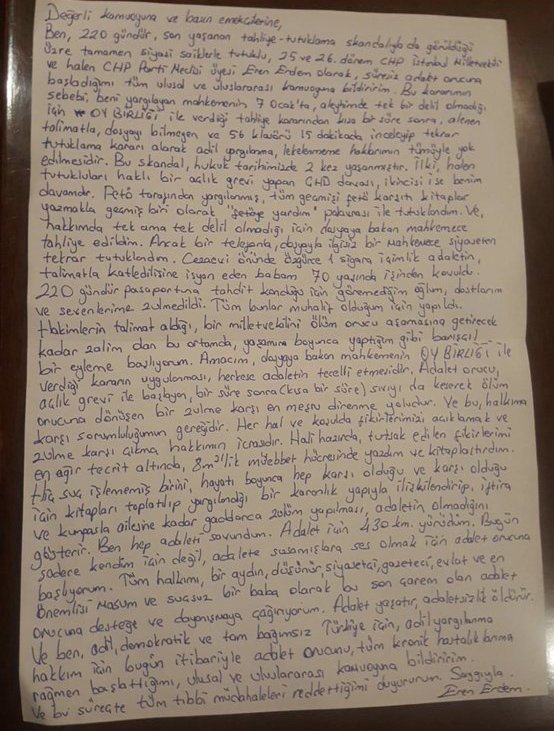 Değerli kamuoyuna ve basın emekçilerine,
Ben, 220 gündür, son yaşanan tahliye-tutuklama skandalıyla da görüldüğü
üzre tamamen siyasi saiklerle tutuklu, 25 ve 26. dönem CHP İstanbul Milletvekili
ve halen CHP Parti Meclisi üyesi Eren Erdem olarak, süresiz adalet orucuna
başladığımı tüm ulusal ve uluslararası kamuoyuna bildiririm. Bu kararımın
sebebi, beni yargılayan mahkemenin 7 Ocak'ta, aleyhimde tek bir delil olmadığı
için OY BİRLİĞİ ile verdiği tahliye kararından kısa bir süre sonra, alenen
talimatla, dosyayı bilmeyen ve 56 klasörü 15 dakikada inceleyip tekrar
tutuklama kararı alarak adil yargılanma, lekelenmeme hakkımın tümüyle yok
edilmesidir. Bu skandal, hukuk tarihimizde 2 kez yaşanmıştır. İlki, halen
tutukluları haklı bir açlık grevi yapan ÇHD davası, ikincisi ise benim
davamdır. Fetö tarafından yargılanmış, tüm geçmişi fetö karşıtı kitaplar
yazmakla geçmiş biri olarak "fetöye yardım" palavrası ile tutuklandım. Ve,
hakkımda tek ama tek delil olmadığı için dosyaya bakan mahkemece
tahliye edildim. Ancak bir telefonla, dosyayla ilgisiz bir mahkemece siyaseten
tekrar tutuklandım. Cezaevi önünde özgürce 1 sigara içimlik adaletin,
talimatla katledilişine isyan eden babam 70 yaşında işinden kovuldu.
220 gündür pasaportuna tahdit konduğu için göremediğim oğlum, dostlarım
ve sevenlerime zulmedildi. Tüm bunlar muhalif olduğum için yapıldı.
Hakimlerin talimat aldığı, bir milletvekilini ölüm orucu aşamasına getirecek
kadar zalim olan bu ortamda, yaşamım boyunca yaptığım gibi barışçıl
bir eyleme başlıyorum. Amacım, dosyaya bakan mahkemenin OY BİRLİĞİ ile
verdiği kararın uygulanması, herkese adaletin tecelli etmesidir. Adalet orucu,
açlık grevi ile başlayan, bir süre sonra (kısa bir süre) sıvıyı da keserek ölüm
orucuna dönüşen bir zulme karşı en meşru direnme yoludur. Ve bu, halkıma
karşı sorumluluğumun gereğidir. Her hal ve koşulda fikirlerimizi açıklamak ve
zulme karşı çıkma hakkımın icrasıdır. Hali hazırda, tutsak edilen fikirlerimi
en ağır tecrit altında, 8m²'lik müebbet hücresinde yazdım ve kitaplaştırdım.
Hiç suç işlememiş birini, hayatı boyunca hep karşı olduğu ve karşı olduğu
için kitapları toplatılıp yargılandığı bir karanlık yapıyla ilişkilendirip, iftira
ve kumpasla ailesine kadar gaddarca zulüm yapılması, adaletin olmadığını
gösterir. Ben hep adaleti savundum. Adalet için 430 km. yürüdüm. Bugün
sadece kendim için değil, adalete susamışlara ses olmak için adalet orucuna
başlıyorum. Tüm halkımı, bir aydın, düşünür, siyasetçi, gazeteci, evlat ve en
önemlisi masum ve suçsuz bir baba olarak bu son çarem olan adalet
orucuna desteğe ve dayanışmaya çağırıyorum. Adalet yaşatır, adaletsizlik öldürür.
Ve ben, adil, demokratik ve tam bağımsız Türkiye için, adil yargılanma
hakkım için bugün itibariyle adalet orucunu, tüm kronik hastalıklarıma
rağmen başlattığımı, ulusal ve uluslararası kamuoyuna bildiririm.
Ve bu süreçte tüm tıbbi müdahaleleri reddettiğimi duyururum. Saygıyla.
Eren Erdem.